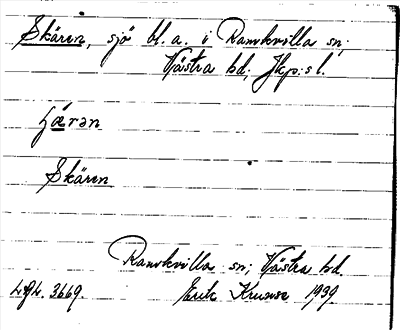 Skären, sjö bl. a. i Ramkvilla sn;
Västra hd; Jkp:s l.
ʃǽrən
Skären
Ramkvilla sn; Västra hd.
3669. Erik 1939